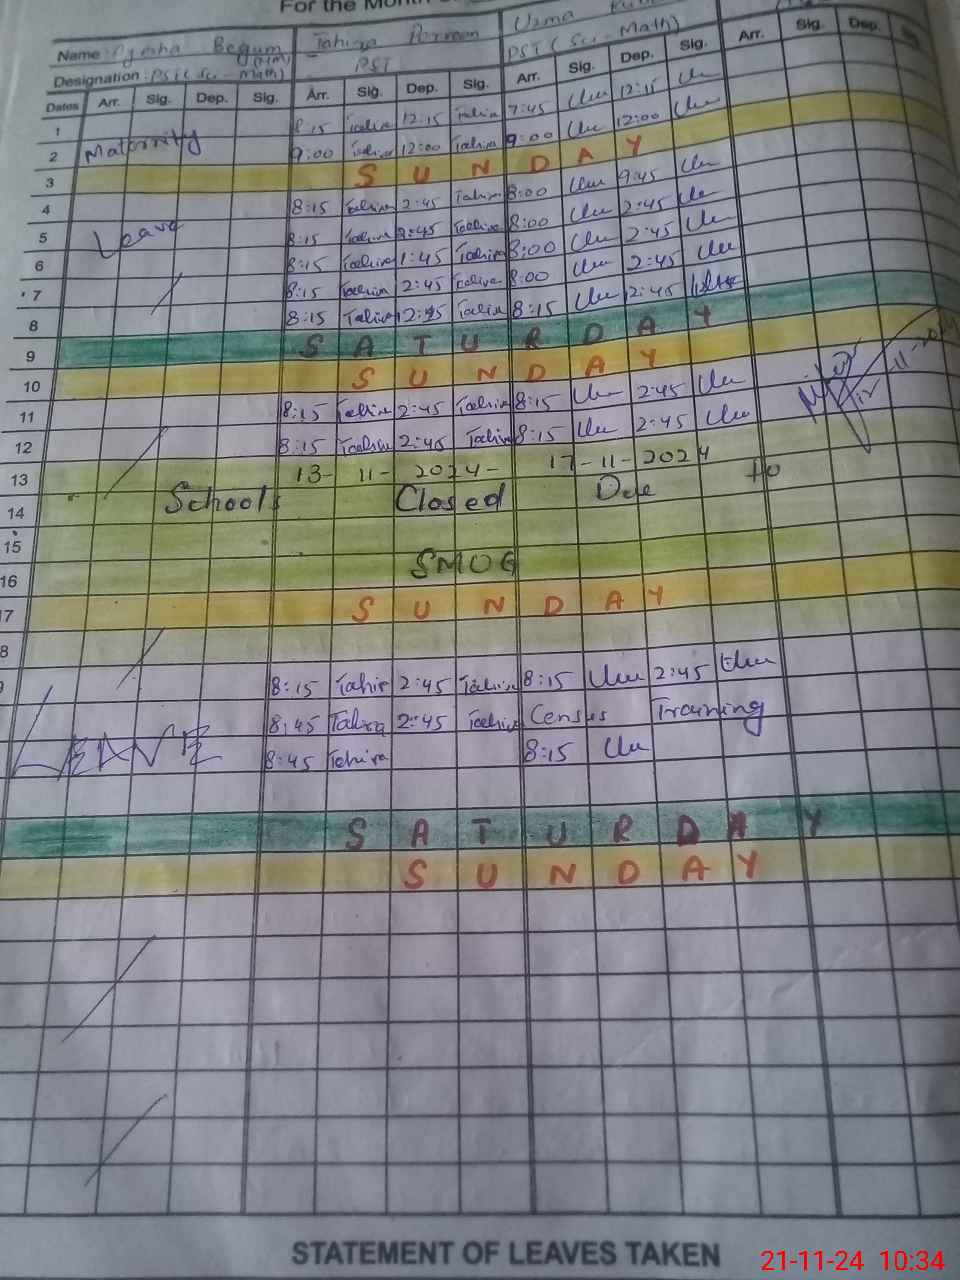 For the Month
Name : Ayesha Begum Tahira Parveen Uzma
Designation : PST( Sci - Math) PST PST ( Sci - Math)
Dates Arr. Sig. Dep. Sig. Arr. Sig. Dep. Sig. Arr. Sig. Dep. Sig. Arr. Sig. Dep. Sig.
1 8:15 Tahira 12:15 Tahira 7:45 12:15
2 Maternity 9:00 Tahira 12:00 Tahira 9:00 12:00
3 S U N D A Y
4 8:15 Tahira 2:45 Tahira 8:00 9:45
5 Leave 8:15 Tahira 2:45 Tahira 8:00 2:45
6 8:15 Tahira 1:45 Tahira 8:00 2:45
7 8:15 Tahira 2:45 Tahira 8:00 2:45
8 8:15 Tahira 2:45 Tahira 8:15 2:45
9 S A T U R D A Y
10 S U N D A Y
11 8:15 Tahira 2:45 Tahira 8:15 2:45
12 8:15 Tahira 2:45 Tahira 8:15 2:45
13 13- 11- 2024- 17-11-2024
14 Schools Closed Due to
15
16 SMOG
17 S U N D A Y
8
9 8:15 Tahira 2:45 Tahira 8:15 2:45
8:45 Tahira 2:45 Tahira Census Training
LEAVE 8:45 Tahira 8:15
S A T U R D A Y
S U N D A Y
STATEMENT OF LEAVES TAKEN
21-11-24 10:34